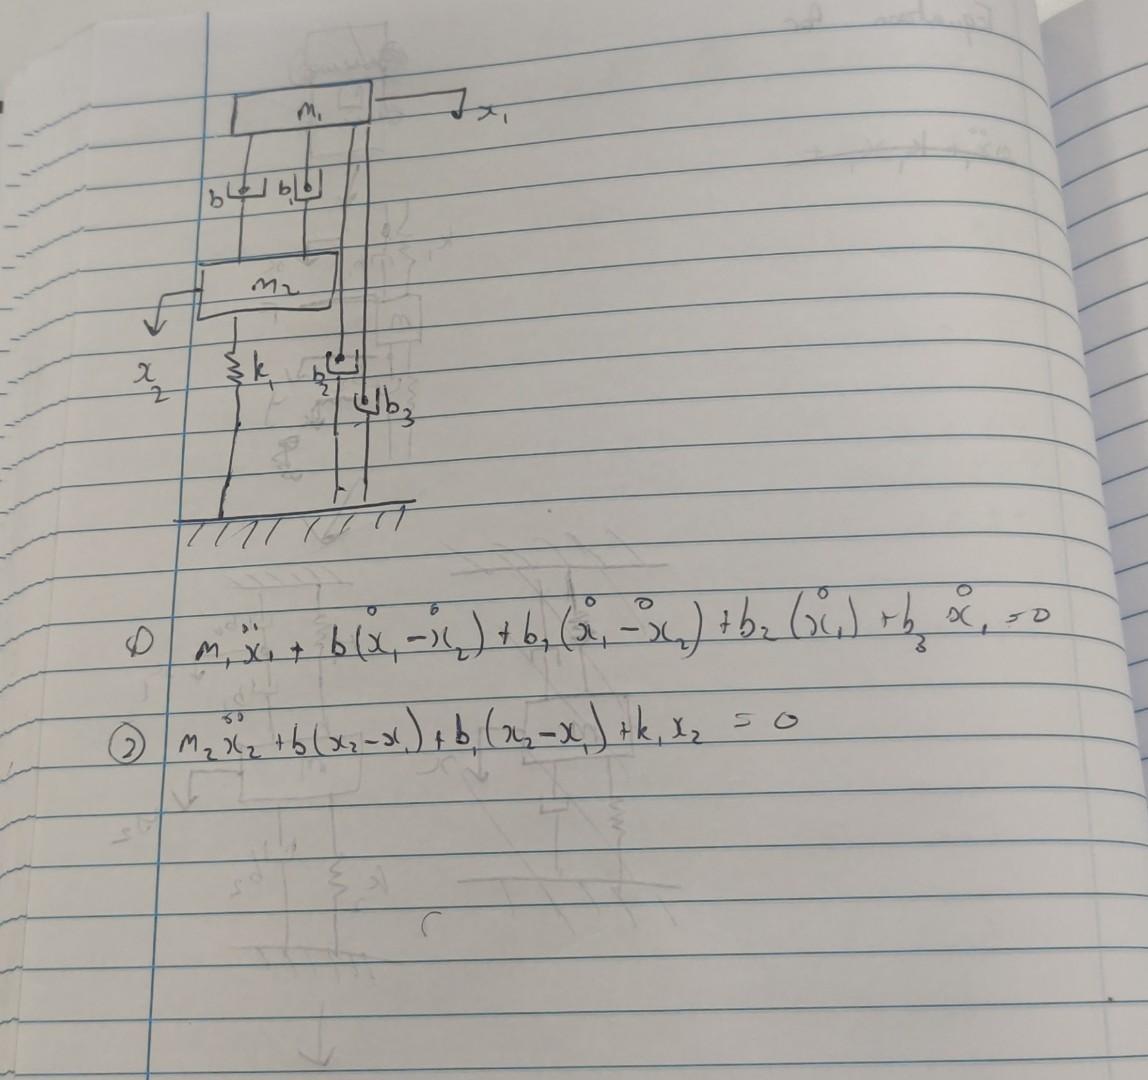 m₁
x₁
b b₁
m₂
x₂
k₁ b₂
b₃
① m₁ẍ₁ + b(ẋ₁ - ẋ₂) + b₁(ẋ₁ - ẋ₂) + b₂(ẋ₁) + b₃ ẋ₁ = 0
② m₂ẍ₂ + b(x₂ - x₁) + b₁(x₂ - x₁) + k₁x₂ = 0